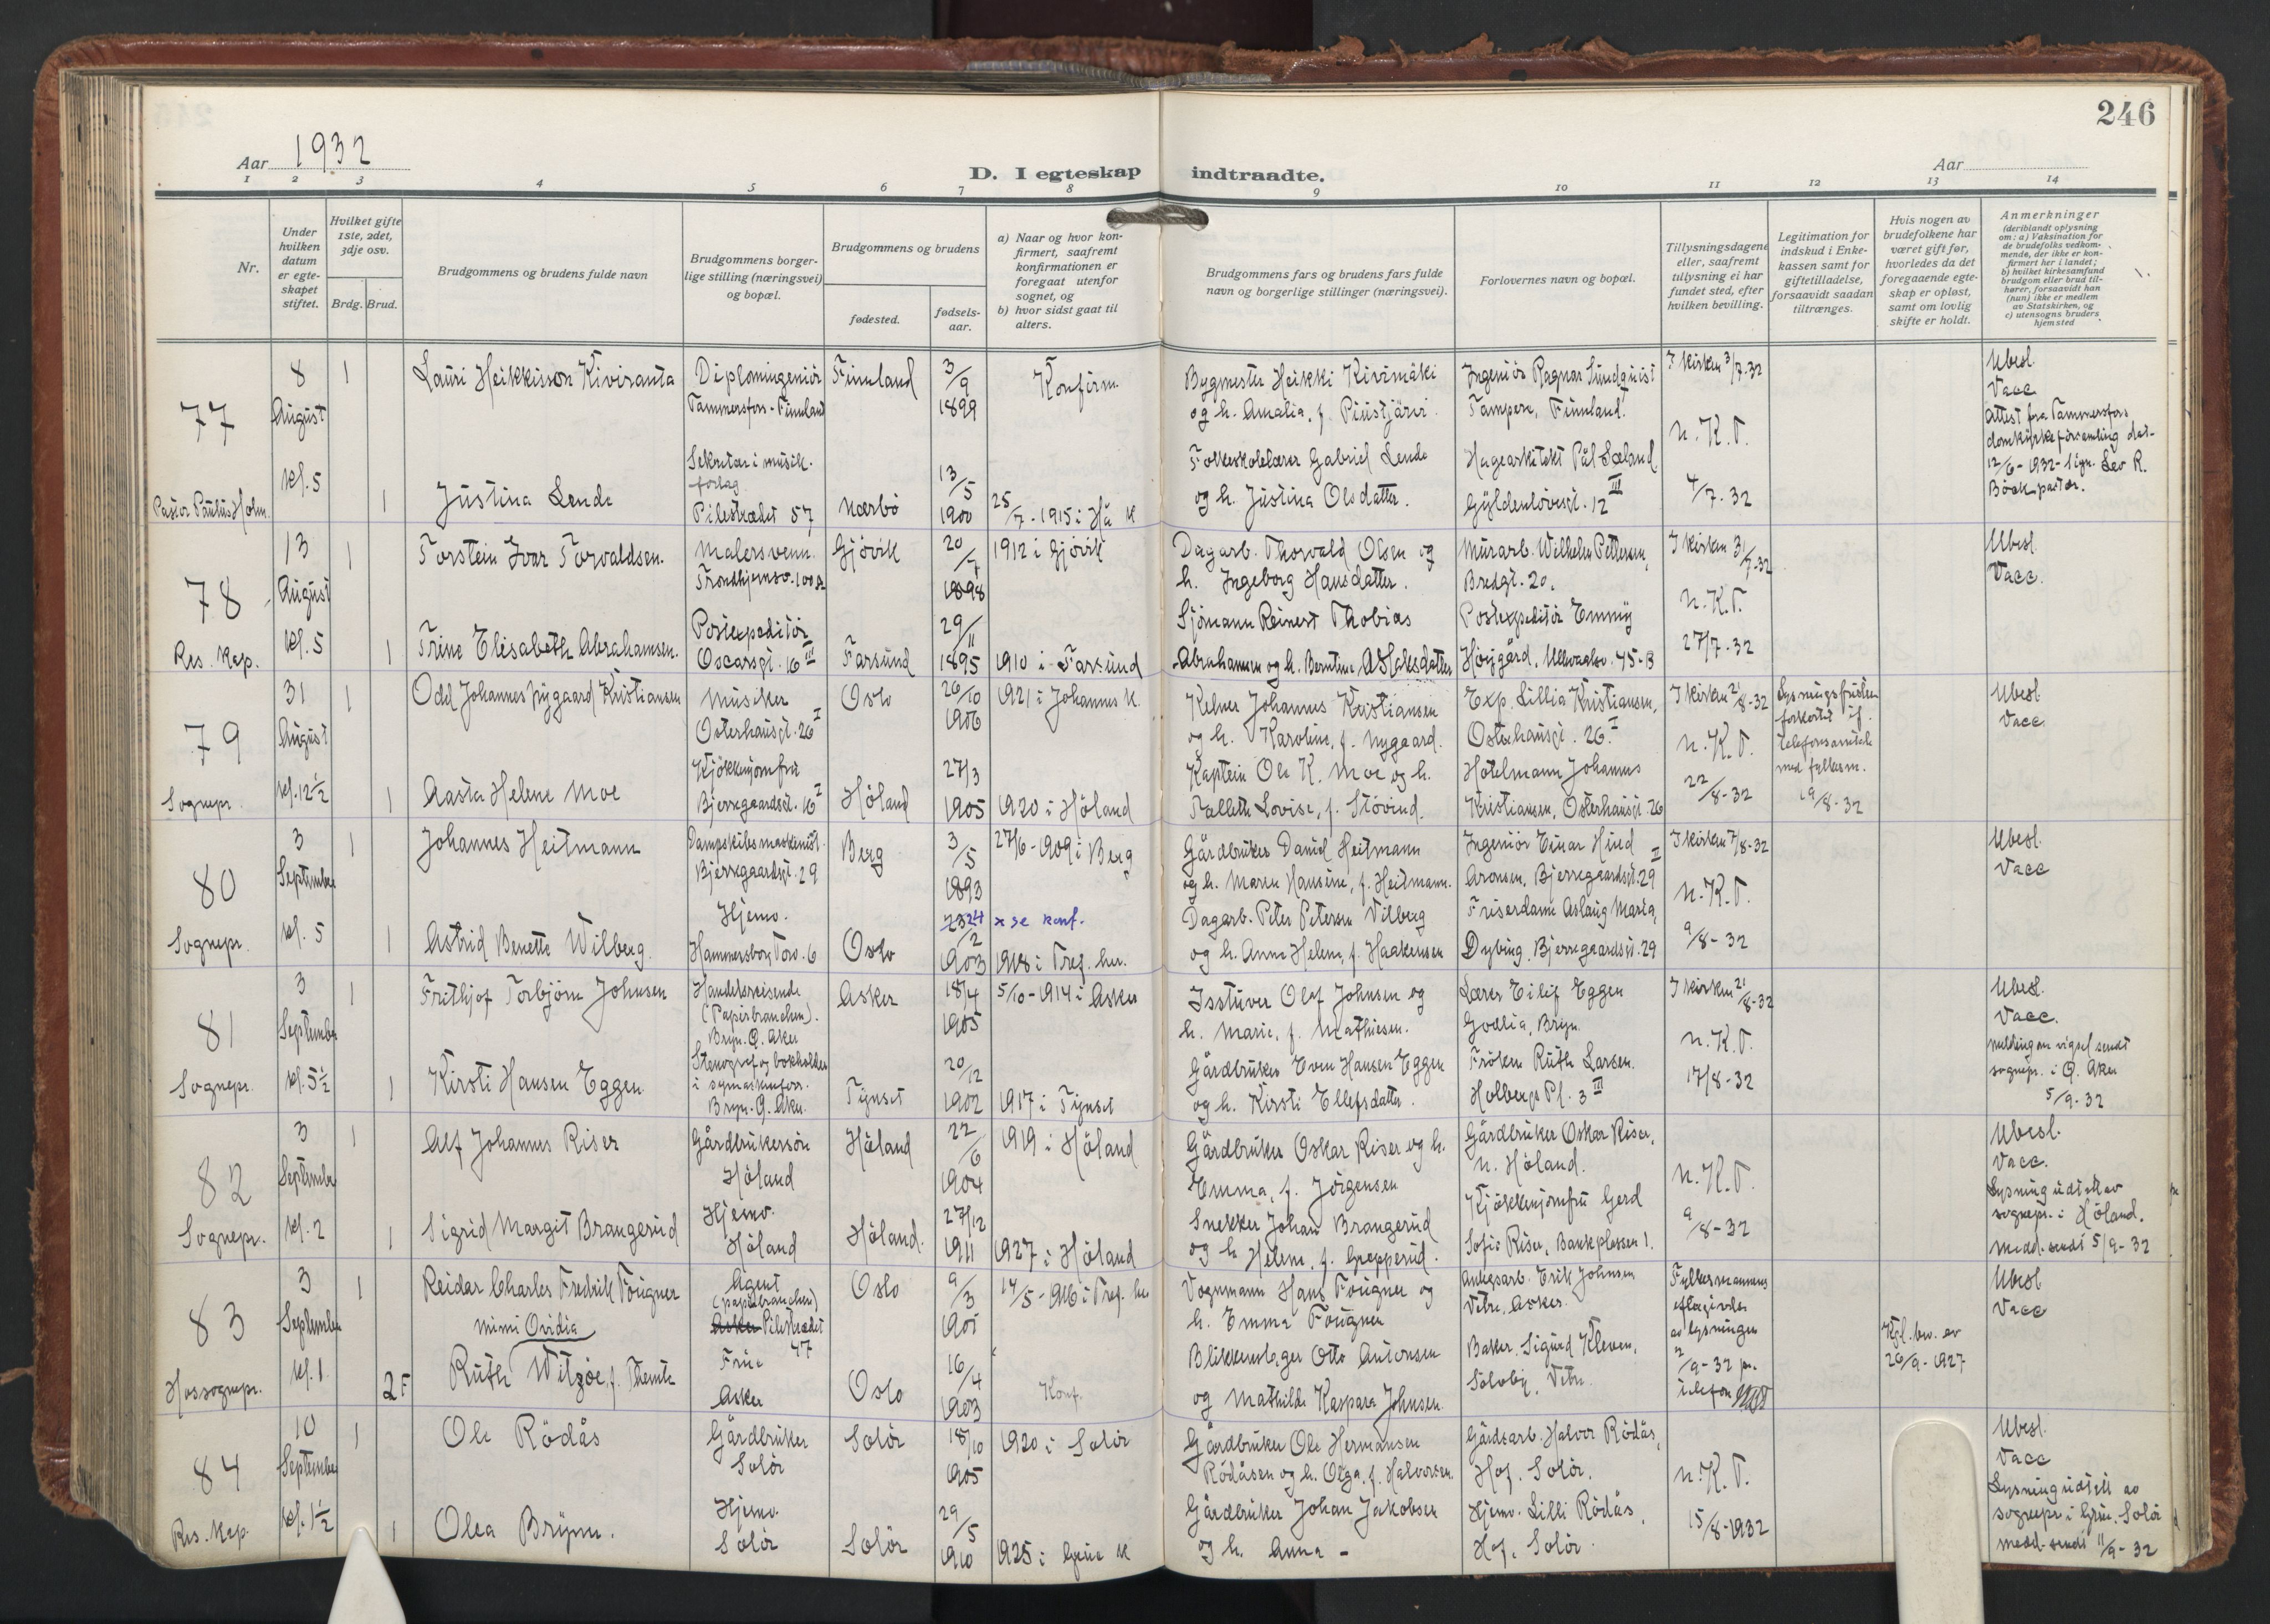 246
Aar 1932
D. I egteskap indtraadte.
Aar
1 2 3 4 5 6 7 8 9 10 11 12 13 14
Nr.
Under hvilken datum er egteskapet stiftet.
Hvilket gifte 1ste, 2det, 3dje osv.
Brdg. Brud.
Brudgommens og brudens fulde navn
Brudgommens borgerlige stilling (næringsvei) og bopæl.
Brudgommens og brudens
fødested.
fødselsaar.
a) Naar og hvor konfirmert, saafremt konfirmationen er foregaat utenfor sognet, og
b) hvor sidst gaat til alters.
Brudgommens fars og brudens fars fulde navn og borgerlige stillinger (næringsvei).
Forlovernes navn og bopæl.
Tillysningsdagene eller, saafremt tillysning ei har fundet sted, efter hvilken bevilling.
Legitimation for indskud i Enkekassen samt for giftetilladelse, forsaavidt saadan tiltrænges.
Hvis nogen av brudefolkene har været gift før, hvorledes da det foregaaende egteskap er opløst, samt om lovlig skifte er holdt.
Anmerkninger (deriblandt oplysning om: a) Vaksination for de brudefolks vedkommende, der ikke er konfirmert her i landet; b) hvilket kirkesamfund brudgom eller brud tilhører, forsaavidt han (hun) ikke er medlem av Statskirken, og c) utensogns bruders hjemsted
77
8 August kl. 5
Pastor Paulus Holm.
1 Lauri Heikkisson Kiviranta
Diplomingeniör
Tammersfors - Finnland
Finnland
3/9 1899
Konfirm.
Bygmester Heikki Kivimäki
og h. Amalia, f. Piustjärvi.
Ingeniör Ragnar Sundquist
Tampere, Finnland.
I kirken 3/7-32
n.K.T.
4/7-32
Ubesl.
Vacc
Attest fra Tammersfors
domkirkeforsamling dat.
12/6-1932 - sign. Lev R.
Böök pastor.
1 Justina Lende
Sekretær i musikforlag
Pilestrædet 57
Nærbö
13/5 1900
25/7-1915 i Hå k
Folkeskolelærer Gabriel Lende
og h. Justina Olsdatter.
Hagearkitekt Pål Sæland
Gyldenlövesgt. 12 III
78
13 August kl. 5
Res. Kap.
1 Torstein Ivar Torvaldsen.
Malersvenn.
Trondhjemsv. 100 A
Gjövik
20/7 1898
1912 i Gjövik
Dagarb. Thorvald Olsen og
h. Ingeborg Hansdatter.
Murarb. Wilhelm Pettersen,
Bredgt. 20.
I kirken 31/7-32
n.K.T.
27/7-32
Ubesl.
Vacc.
1 Trine Elisabeth Abrahamsen.
Postexpeditör
Oscarsgt. 16 III
Farsund
29/11 1895
1910 i Farsund
Sjömann Reinert Thobias
Abrahamsen og h. Berntine Aslaksdatter
Postexpeditör Emmy
Höygård, Ullevaalsv. 45-B
79
31 August kl. 12½
Sognepr.
1 Odd Johannes Nygaard Kristiansen
Musiker
Osterhausgt. 26 I
Oslo
26/10 1906
1921 i Johannes k.
Kelner Johannes Kristiansen
og h. Karoline, f. Nygaard.
Exp. Lillia Kristiansen,
Osterhausgt. 26 I
I kirken 21/8-32
n.K.T.
22/8-32
Lysningsfristen
forkortet if.
telefonsamtale
med fylkesm.
19/8-32
Ubesl.
Vacc
1 Aasta Helene Moe
Kjökkenjomfru
Bjerregaardsgt. 16 I
Höland
27/3 1905
1920 i Höland
Kaptein Ole K. Moe og h.
Lovise, f. Stövind.
Hotelmann Johannes
Kristiansen, Osterhausgt. 26
80
3 September kl. 5
Sognepr.
1 Johannes Heitmann
Dampskibsmaskinist.
Bjerregaardsgt. 29
Berg
3/5 1893
27/6-1909 i Berg
Gårdbruker David Heitmann
og h. Maren Hansine, f. Heitmann.
Ingeniör Einar Hund
Aronsen, Bjerregaardsgt. 29 II
I kirken 7/8-32
n.K.T.
9/8-32
Ubesl.
Vacc
1 Astrid Benette Wilberg
Hjemv.
Hammersborg Torv. 6
Oslo
24/2 1903
x se konf.
1918 i Tref. ker.
Dagarb. Peter Petersen Vilberg
og h. Anne Helene, f. Haakensen
Friserdame Aslaug Maria,
Dybing, Bjerregaardsgt. 29
81
3 September kl. 5½
Sognepr.
1 Frithjof Torbjörn Johnsen
Handelsreisende
(Papirbranchen).
Bryn. Ö. Aker
Asker
18/4 1905
5/10-1914 i Asker
Isstuver Olaf Johnsen og
h. Marie, f. Mathisen.
Lærer Eilif Eggen
Godlia, Bryn.
I kirken 21/8-32
n.K.T.
17/8-32
Ubesl.
Vacc.
melding om vigsel sendt
sognepr. i Ö. Aker
5/9-32
1 Kirsti Hansen Eggen
Stenograf og bokholder
i symaskinforr.
Bryn. Ö. Aker
Tynset
20/12 1902
1917 i Tynset
Gårdbruker Even Hansen Eggen
og h. Kirsti Ellefsdatter.
Fröken Ruth Larsen.
Holbergs Pl. 3 III
82
3 September kl. 2
Sognepr.
1 Alf Johannes Riser
Gårdbrukersön
Höland
Höland
22/6 1904
1919 i Höland
Gårdbruker Oskar Riser og h.
Emma, f. Jörgensen
Gårdbruker Oskar Riser,
n. Höland.
n.K.T.
9/8-32
Ubesl.
Vacc.
Lysning udstet av
sognepr. i Höland.
Medd. sendt 5/9-32
1 Sigrid Margit Brangerud
Hjemv.
Höland
Höland.
27/12 1911
1927 i Höland
Snekker Johan Brangerud
og h. Helene, f. Grepperud.
Kjökkenjomfru Gerd
Sofie Riser, Bankplassen 1.
83
3 September kl. 1
Hossognepr.
1 Reidar Charles Fredrik Fougner
Agent
(papirbranchen)
Asker Pilestrædet 47
Oslo
9/3 1905
14/5-1916 i Tref. ker
Vognmann Hans Fougner og
h. Emma Fougner
Anlegsarb. Erik Johnsen
Vetre, Asker.
Fylkesmannens
eftergivelse
av lysningen
2/9-32 pr.
telefon
Kgl. bev. av
26/9-1927
Ubesl
Vacc
2 F Mimi Ovidia
Ruth Witzöe, f. Themte
Frue
Asker
Oslo
16/4 1903
Konf.
Blikkenslager Otto Antonsen
og Mathilde Kaspara Johnsen
Baker. Sigurd Kleven,
Solvby, Vetre
84
10 September kl. 1½
Res. Kap.
1 Ole Rödås
Gårdbruker
Solör
Solör
18/10 1905
1920 i Solör
Gårdbruker Ole Hermansen
Rödåsen og h. Olga, f. Halvorsen.
Gårdsarb. Halvor Rödås,
Hof. Solör.
n.K.T.
15/8-1932
Ubesl.
Vacc
Lysning udstett av
sognepr i Grue. Solör
medd. sendt 11/9-32
1 Olea Brynn.
Hjemv.
Solör
Solör
29/5 1910
1925 i Grue k
Gårdbruker Johan Jakobsen
og h. Anna -
Hjemv. Lilli Rödås,
Hof. Solör.